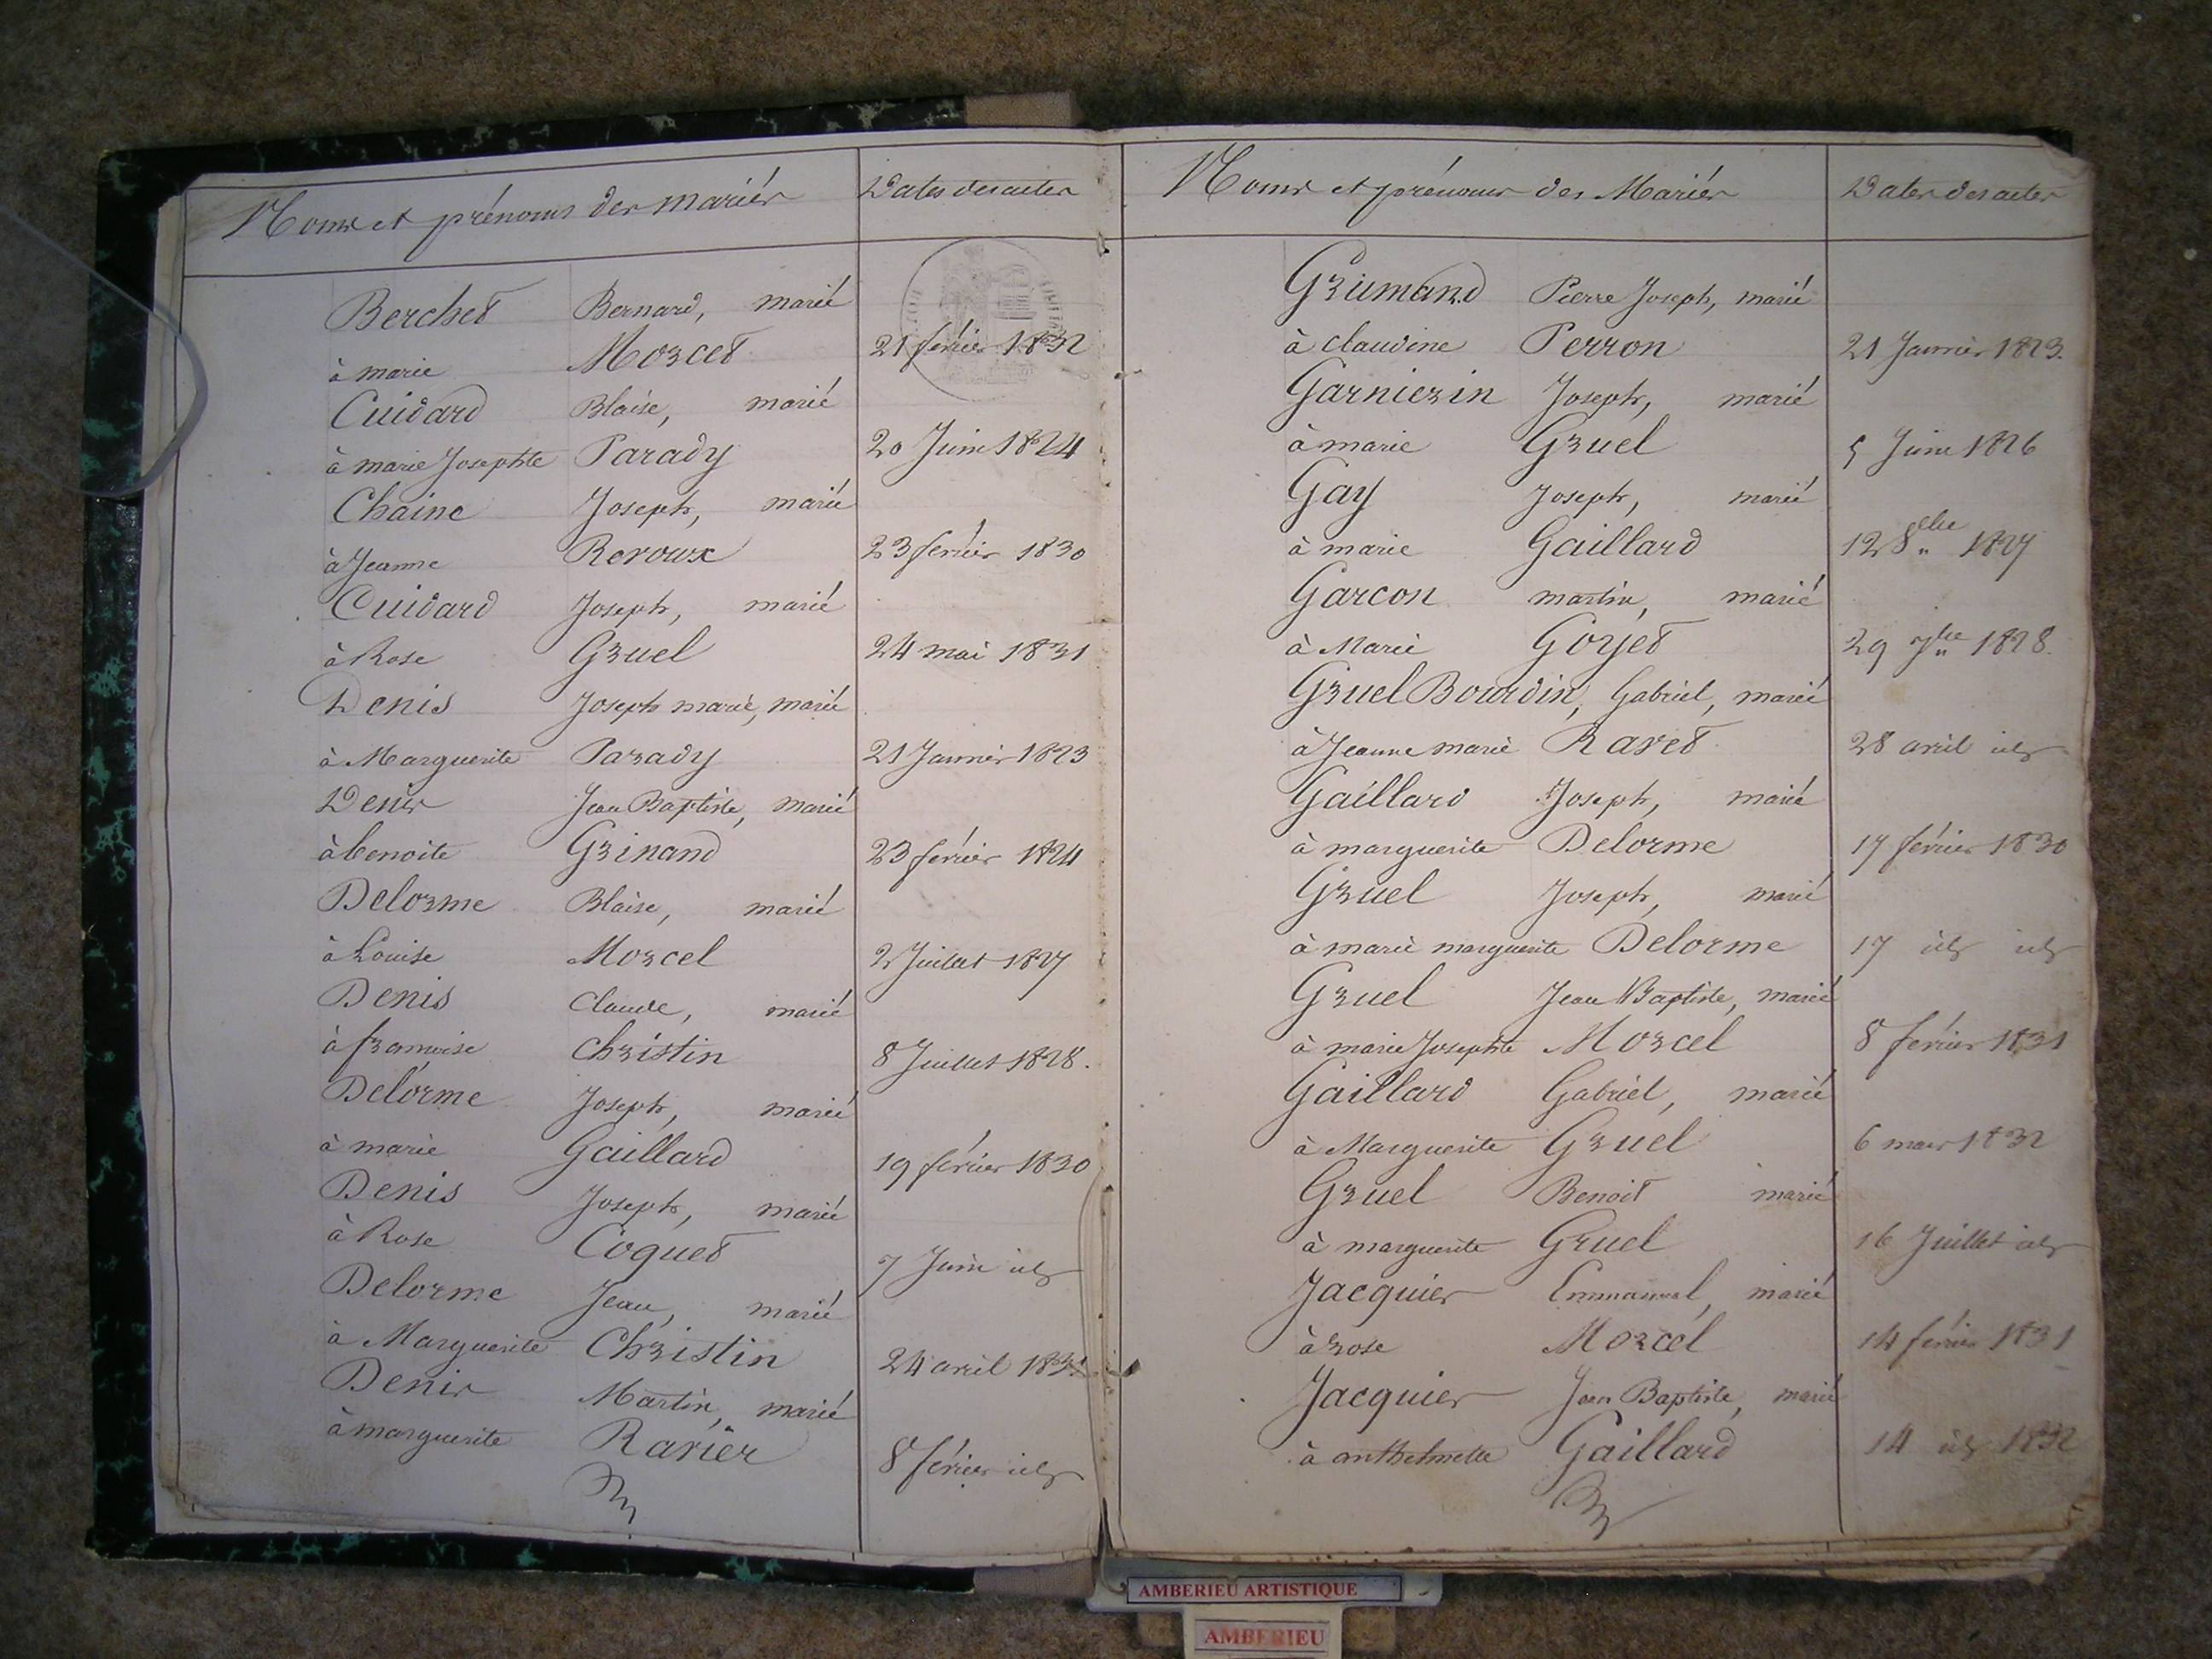 Noms et prénoms des mariés Dates des actes
Berchet Bernard, marié
à marie Morcet 21 février 1832
Cuidard Blaise, marié
à marie Josephte Parady 20 Juin 1824
Chaine Joseph, marié
à Jeanne Reroux 23 février 1830
Cuidard Joseph, marié
à Rose Gruel 24 mai 1831
Denis Joseph marie, marié
à Marguerite Parady 21 Janvier 1823
Denis Jean Baptiste, marié
à benoite Grinand 23 février 1824
Delorme Blaise, marié
à Louise Morcel 2 Juillet 1827
Denis Claude, marié
à francoise Christin 8 Juillet 1828.
Delorme Joseph, marié
à marie Gaillard 19 février 1830
Denis Joseph, marié
à Rose Coquet 7 Juin id
Delorme Jean, marié
à Marguerite Christin 24 avril 1831
Denis Martin, marié
à marguerite Ravier 8 février id
Noms et prénoms des Mariés Dates des actes
Grumand Pierre Joseph, marié
à claudine Perron 21 Janvier 1823.
Garnierin Joseph, marié
à marie Gruel 5 Juin 1826
Gay Joseph, marié
à marie Gaillard 12 8bre 1827
Garcon martin, marié
à Marie Goyet 29 7bre 1828.
Gruel Bourdin, Gabriel, marié
à Jeanne marie Ravet 28 avril id
Gaillard Joseph, marié
à marguerite Delorme 17 février 1830
Gruel Joseph, marié
à marie marguerite Delorme 17 id id
Gruel Jean Baptiste, marié
à marie Josephte Morcel 8 février 1831
Gaillard Gabriel, marié
à Marguerite Gruel 6 mars 1832
Gruel Benoit marié
à marguerite Gruel 16 Juillet id
Jacquier Emmanuel, marié
à rose Morcel 14 février 1831
Jacquier Jean Baptiste, marié
à anthelmette Gaillard 14 id 1832
AMBERIEU ARTISTIQUE
AMBERIEU